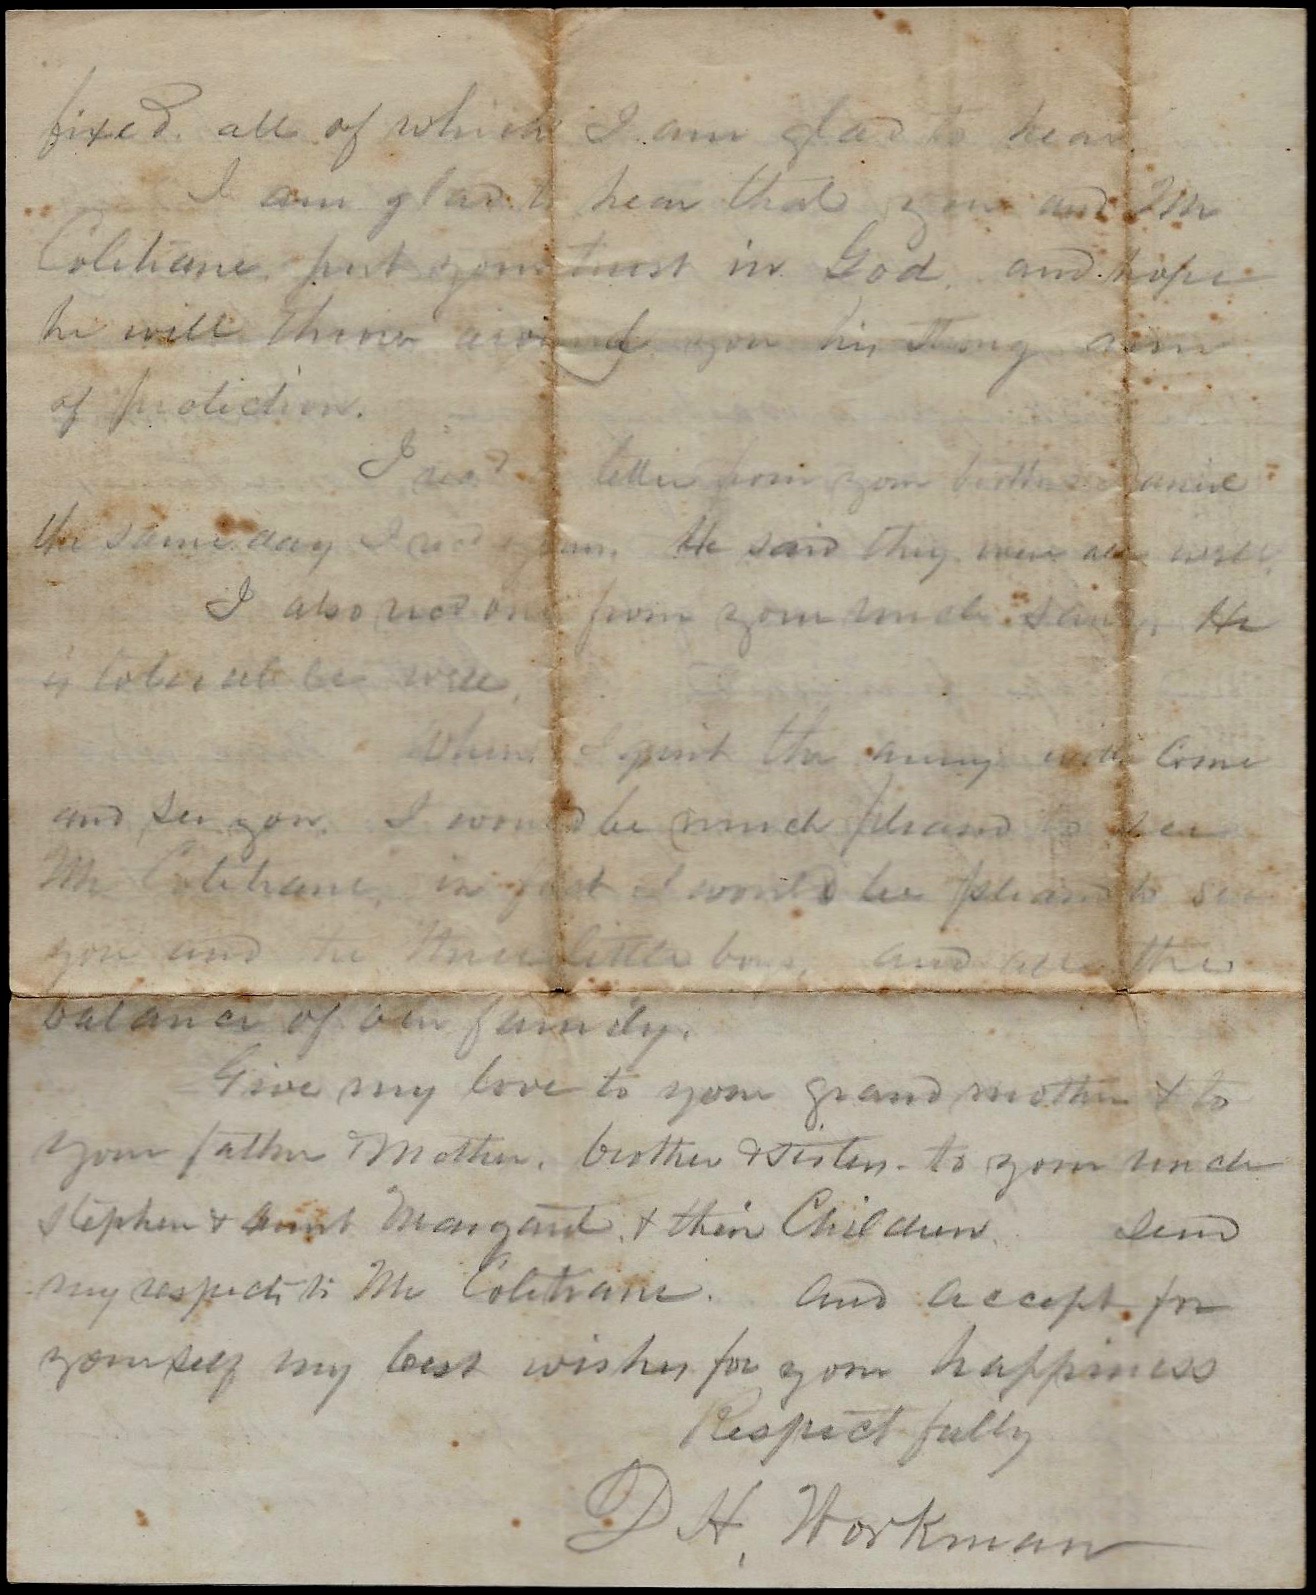 fixed. all of which I am glad to hear.
I am glad to hear that you and Mr
Coletrane, put your trust in God, and hope
he will throw around you his strong arm
of protection.
I recd letter from your brother Daniel
the same day I recd yours. He said they were all well.
I also recd one from your uncle He
is tolerable well.
When I quit the army will come
and see you. I would be much pleased to see
Mr Coletrane, in fact I would be pleased to see
you and the three little boys, and all the
balance of our family.
Give my love to your grand mother & to
your father & Mother, brother & sisters. to your uncle
Stephen & aunt Margaret. & their Children. Send
my respects to Mr Coletrane. and accept for
yourself my best wishes for your happiness
Respectfully
D H, Workman